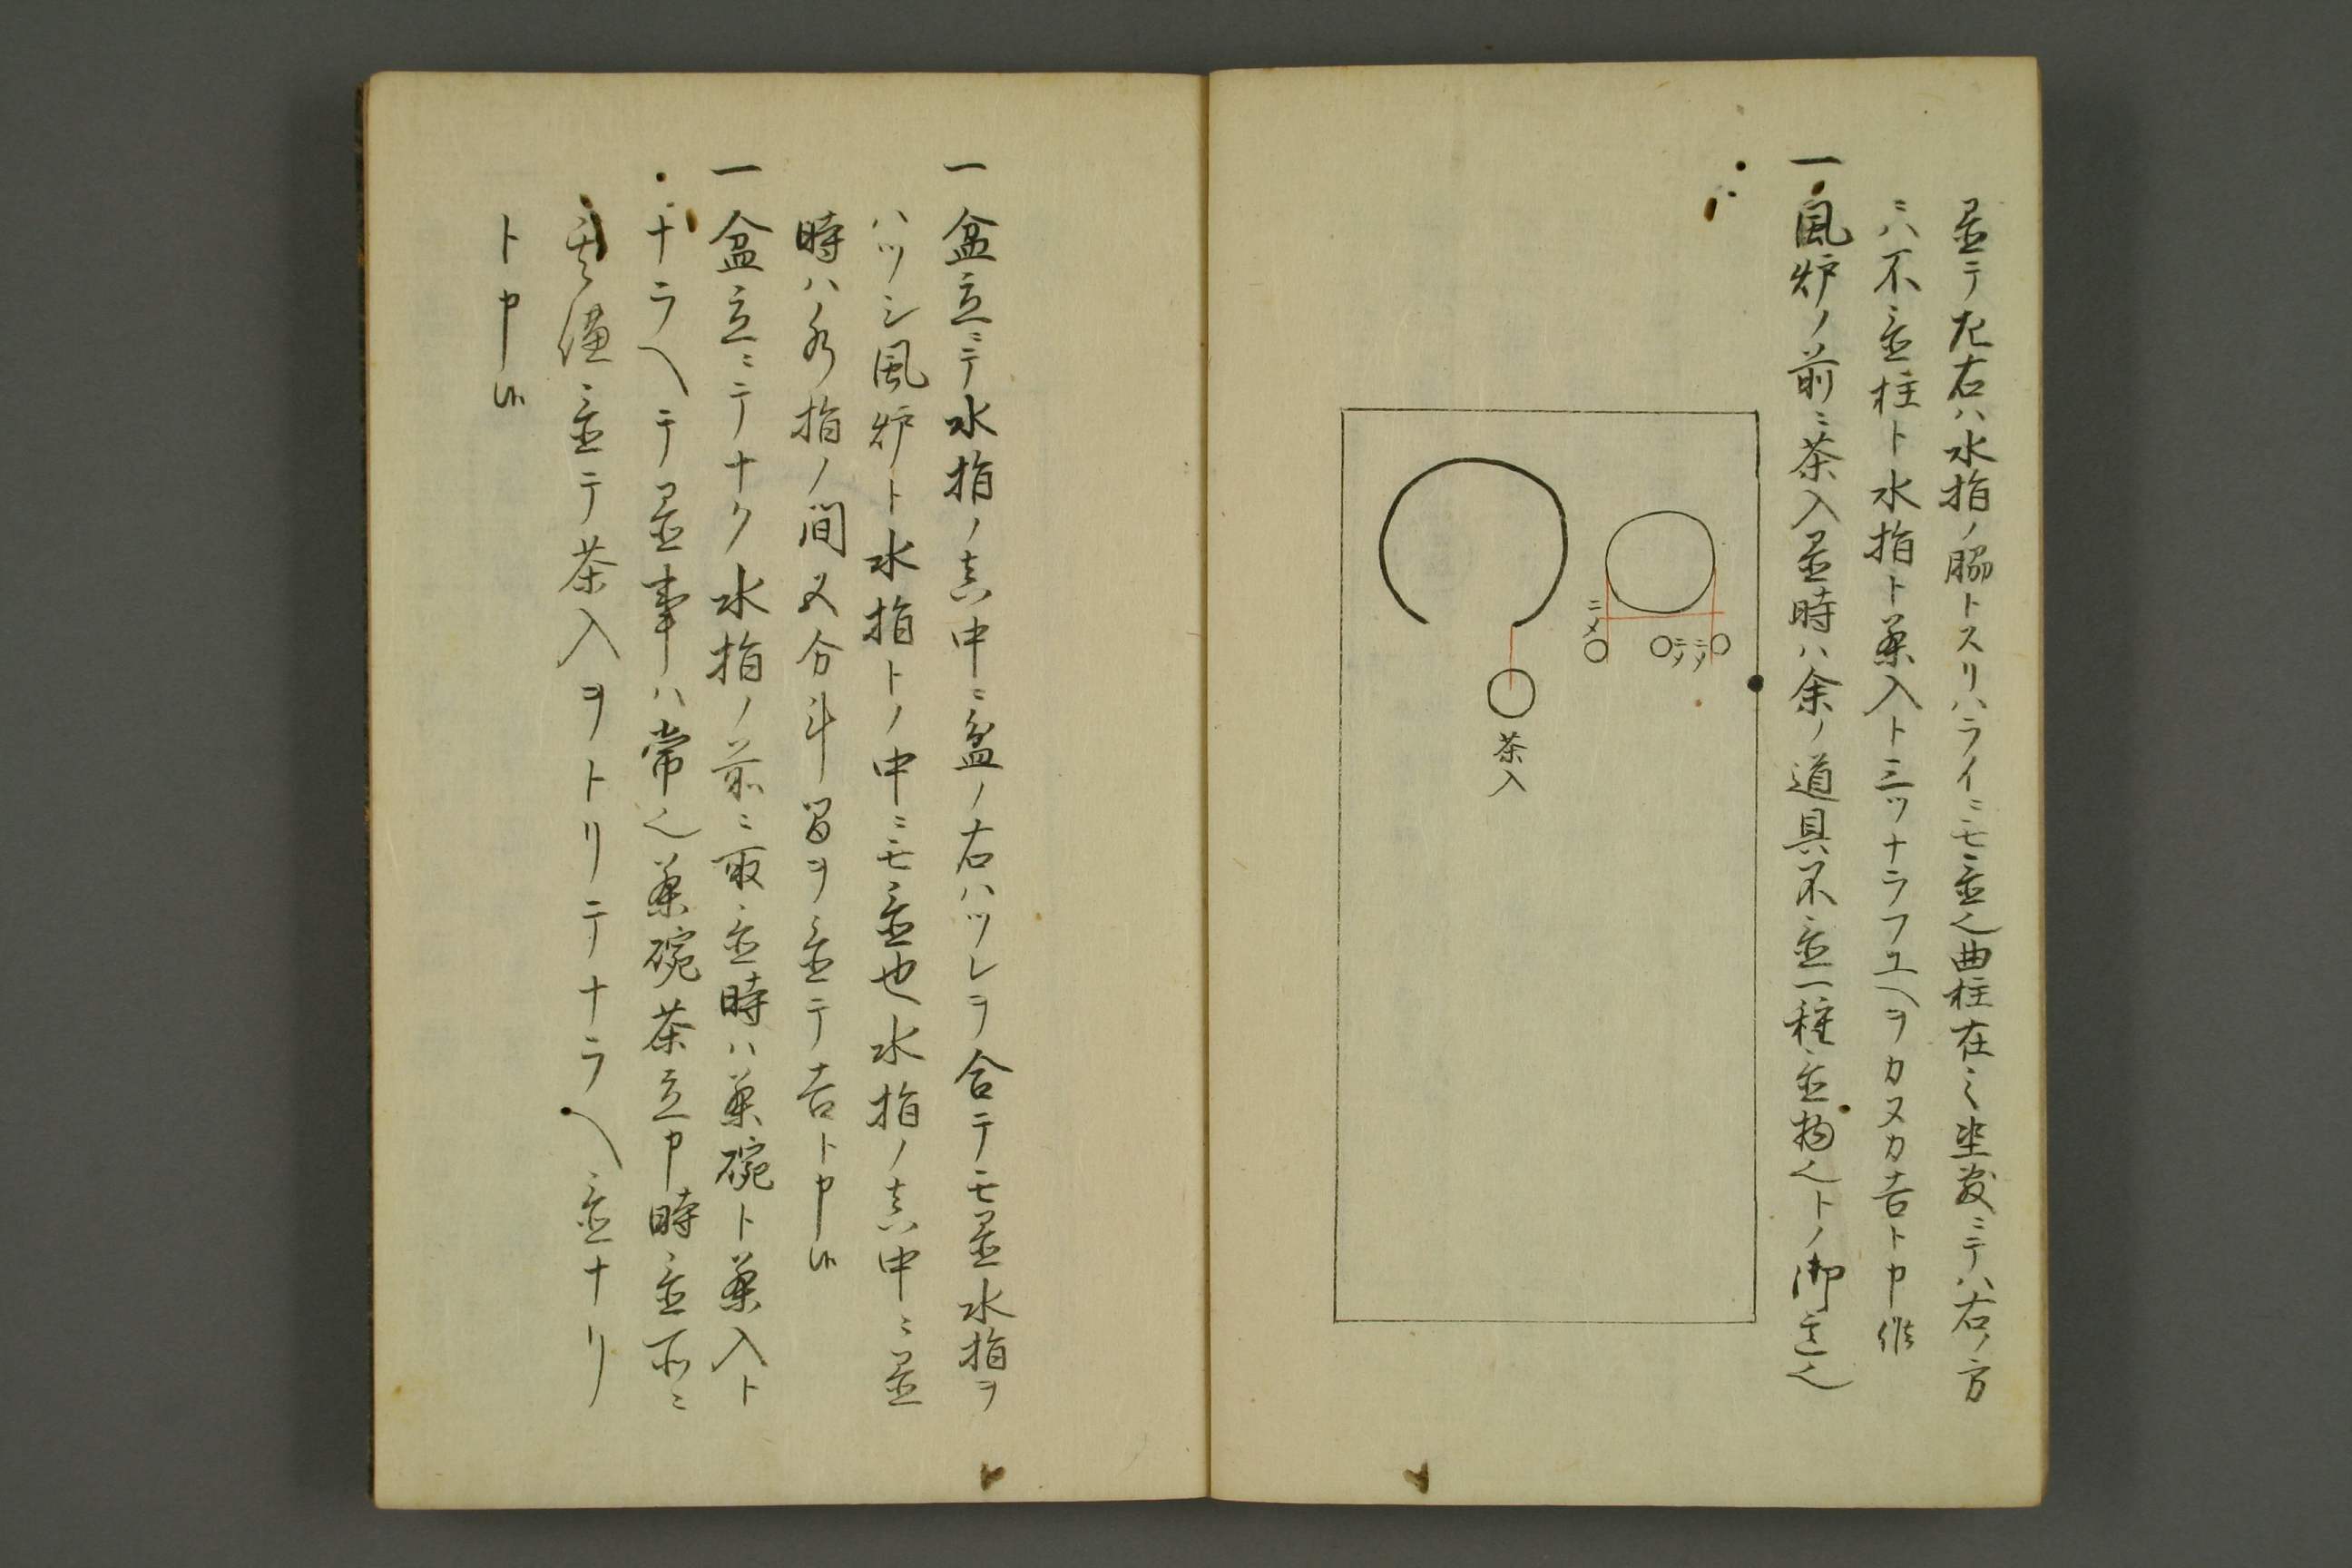 置テ左右ハ水指ノ脇トスリハライニモ置也曲柱在之坐敷ニテハ右ノ方
ニハ不置柱ト水指ト茶入ト三ツナラフユヘヲカヌカ吉ト申候
一風炉ノ前ニ茶入置時ハ余ノ道具不置一種置物也トノ御事也
ニメ
ニテメ
茶入
一盆立ニテ水指ノ真中ニ盆ノ右ハツレヲ合テモ置水指ヲ
ハツシ風炉ト水指トノ中ニモ置也水指ノ真中ニ置
時ハ水指ノ間五分斗間ヲ置テ吉ト申候
一盆立ニテナク水指ノ前ニ取置時ハ茶碗ト茶入ト
ナラヘテ置事ハ常也茶碗茶立申時置所ニ
其儘置テ茶入ヲトリテナラヘ置ナリ
ト申候